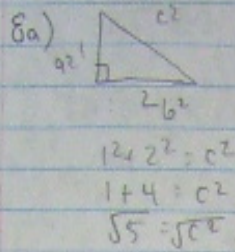 8a)
c²
a² 1
2 b²
1² + 2² = c²
1 + 4 = c²
√5 = √c²